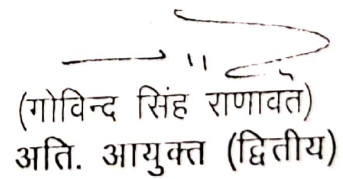 (गोविन्द सिंह राणावत)
अति. आयुक्त (द्वितीय)